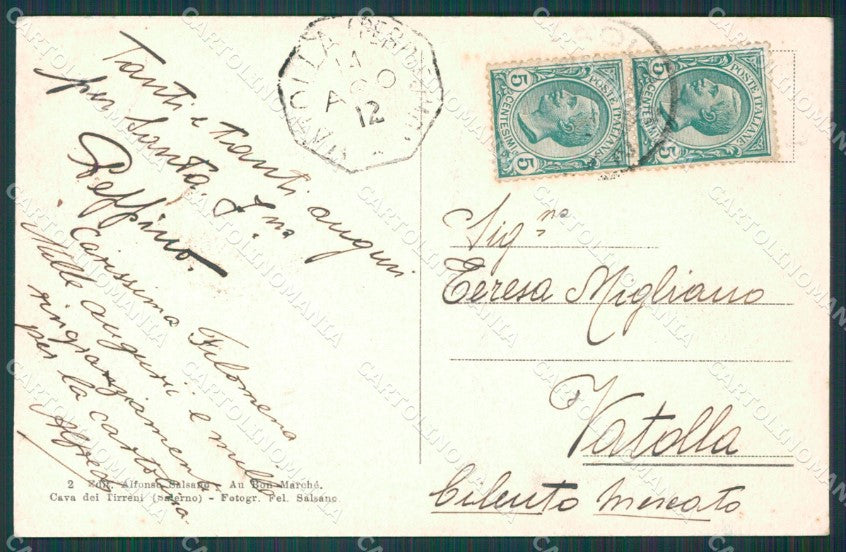 Tanti e tanti auguri
per Santa F.na
Peppino.
Carissima Filomena
Mille augurii e mille
ringraziamenti
per la cartolina.
Alfredo
2 Edit. Alfonso Salsano - Au Bon Marché.
Cava dei Tirreni (Salerno) - Fotogr. Fel. Salsano
VATOLLA
14
AGO
12
5 CENTESIMI 5
POSTE ITALIANE
5 CENTESIMI 5
POSTE ITALIANE
Sig.na
Teresa Migliano
Vatolla
Cilento Mercato
CARTOLINOMANIA